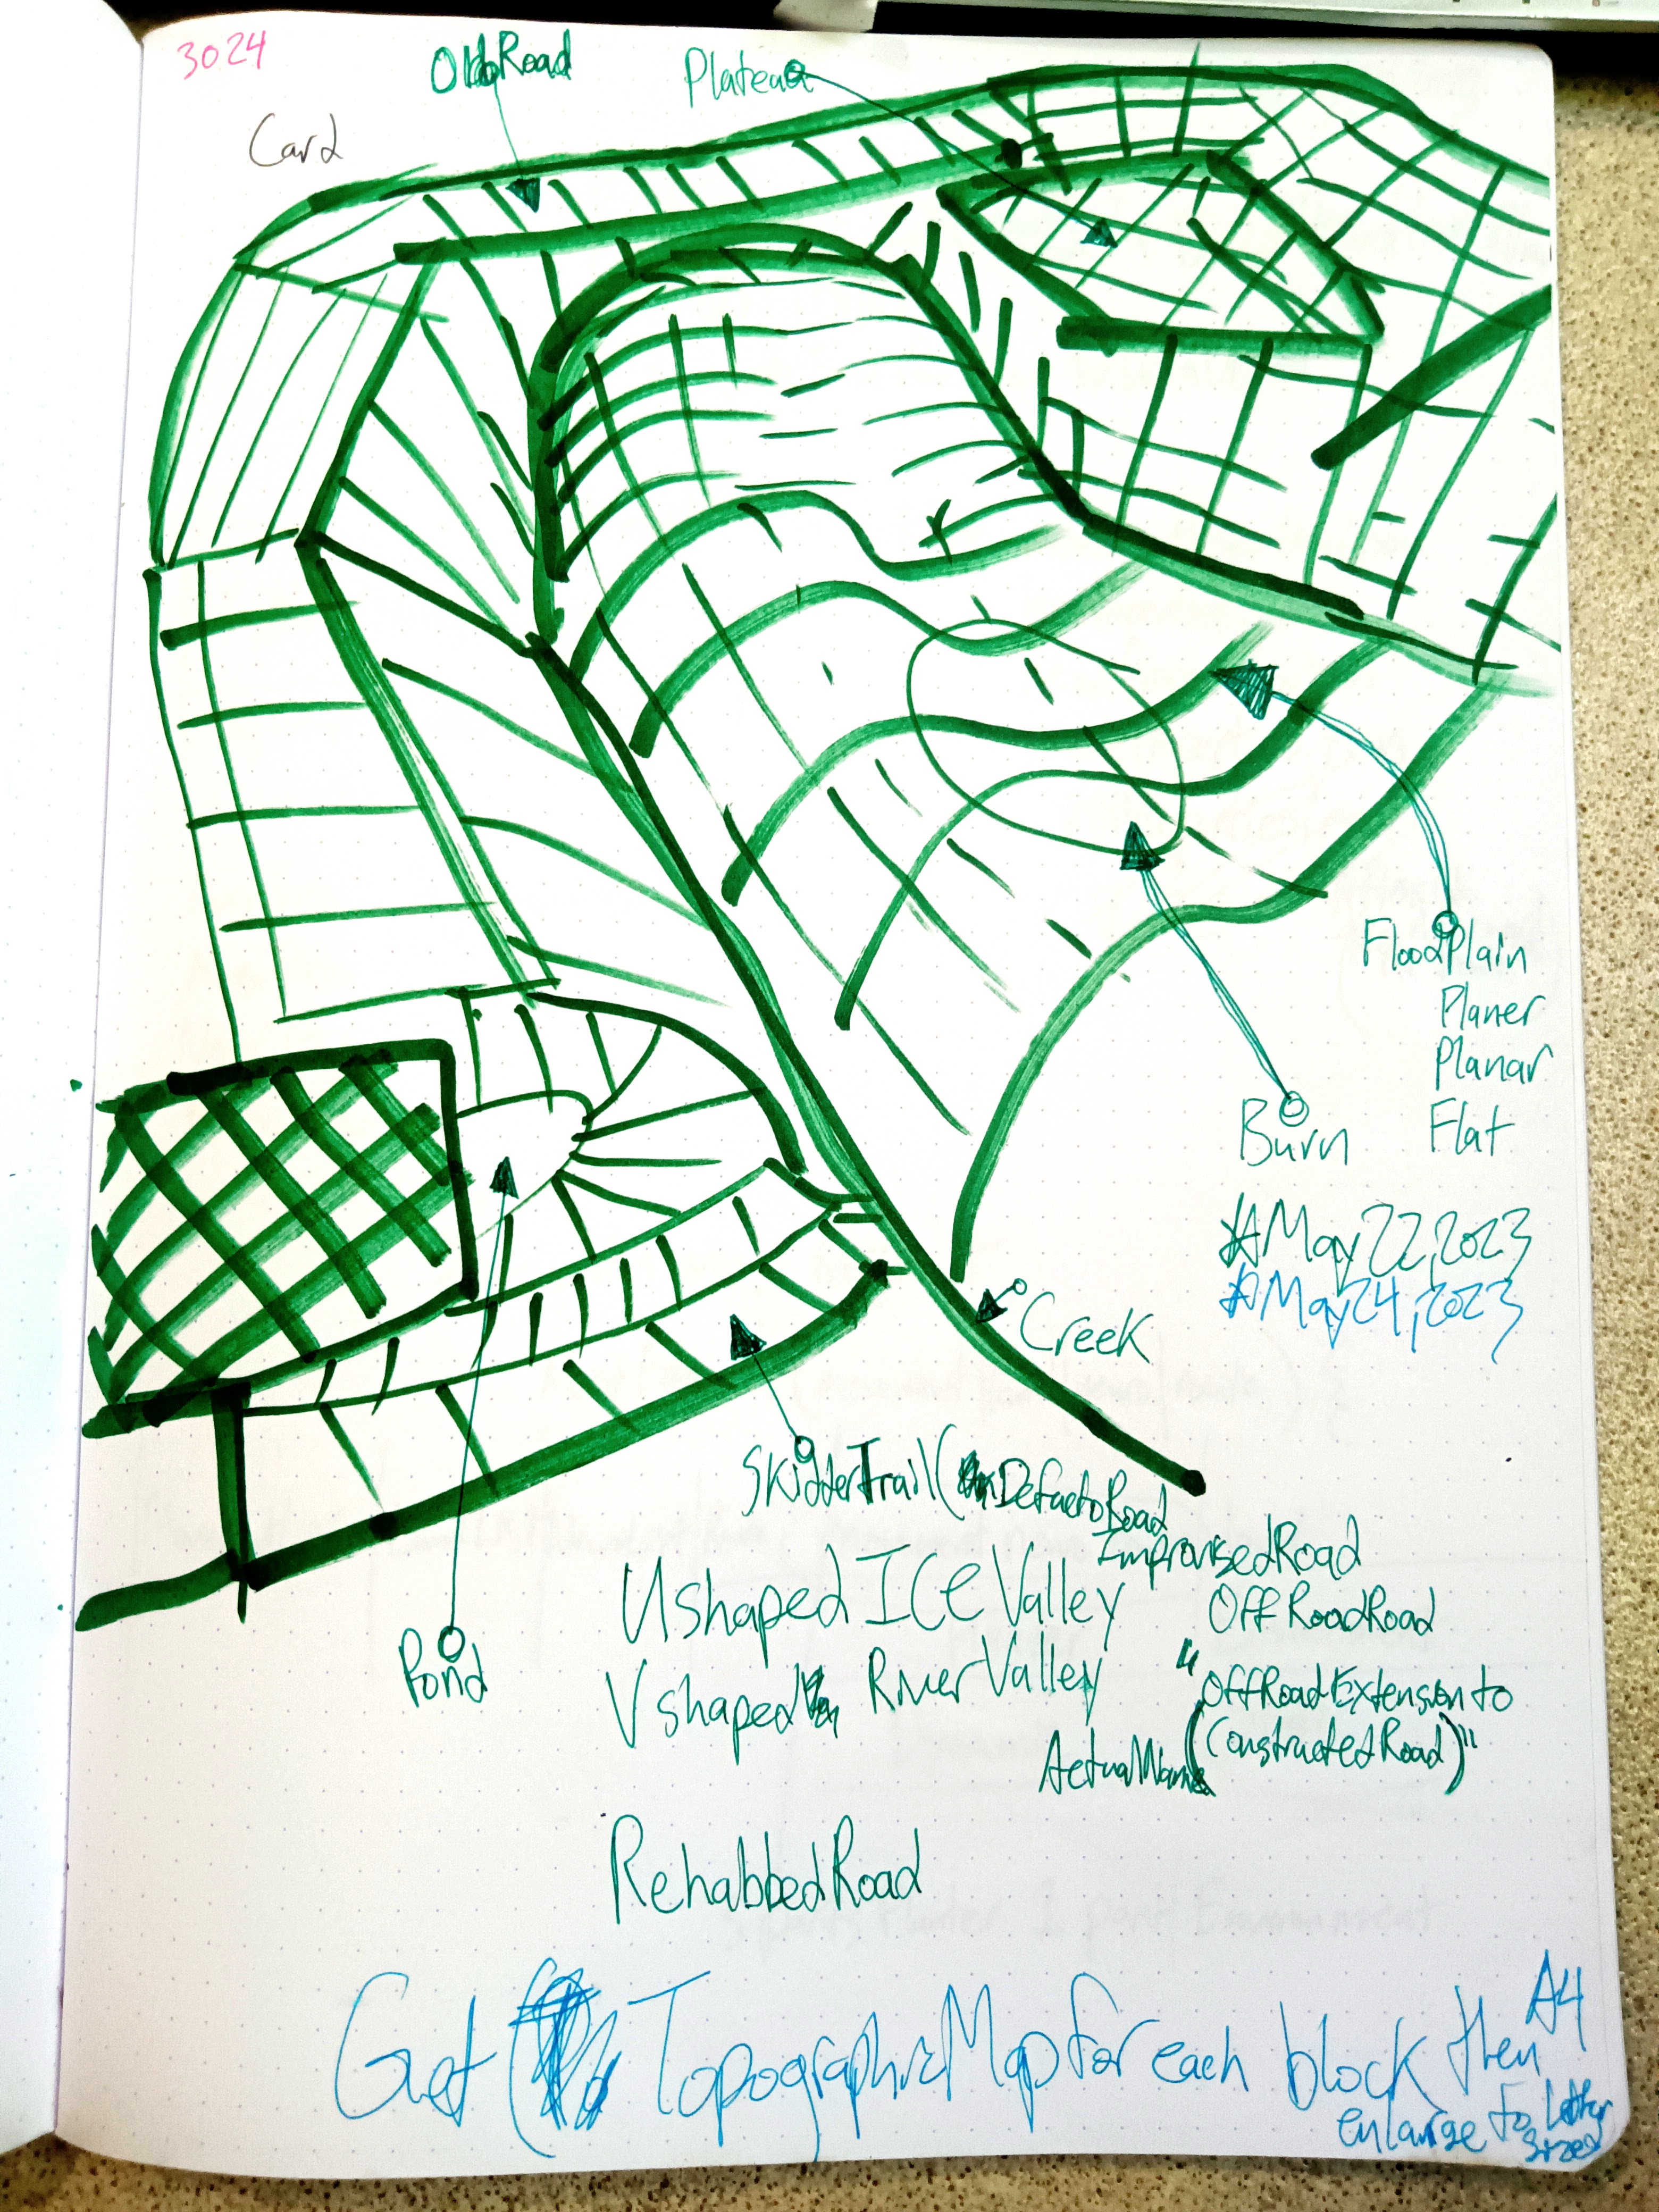 3024
Card
OldRoad
Plateau
FloodPlain
Planer
Planar
Flat
Burn
May 22, 2023
May 24, 2023
Creek
SkidderTrail (DefactoRoad
ImprovisedRoad
OffRoadRoad
"OffRoadExtension to
(ConstructedRoad)"
Ushaped ICE Valley
Vshaped RiverValley
ActualName
Pond
RehabbedRoad
Get TopographicMap for each block then A4
enlarge to Letter
sized